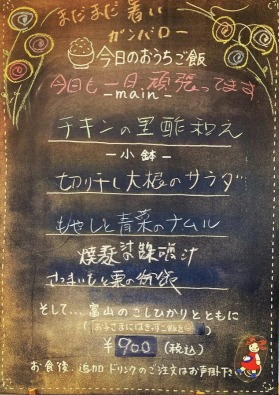 まだまだ暑い
ガンバロー
今日のおうちご飯
今日も一日頑張ってます
-main-
チキンの黒酢和え
-小鉢-
切り干し大根のサラダ
もやしと青菜のナムル
さつまいもと栗の御飯
そして…富山のこしひかりとともに
¥900(税込)
お食後、追加ドリンクのご注文はお声掛け下さい